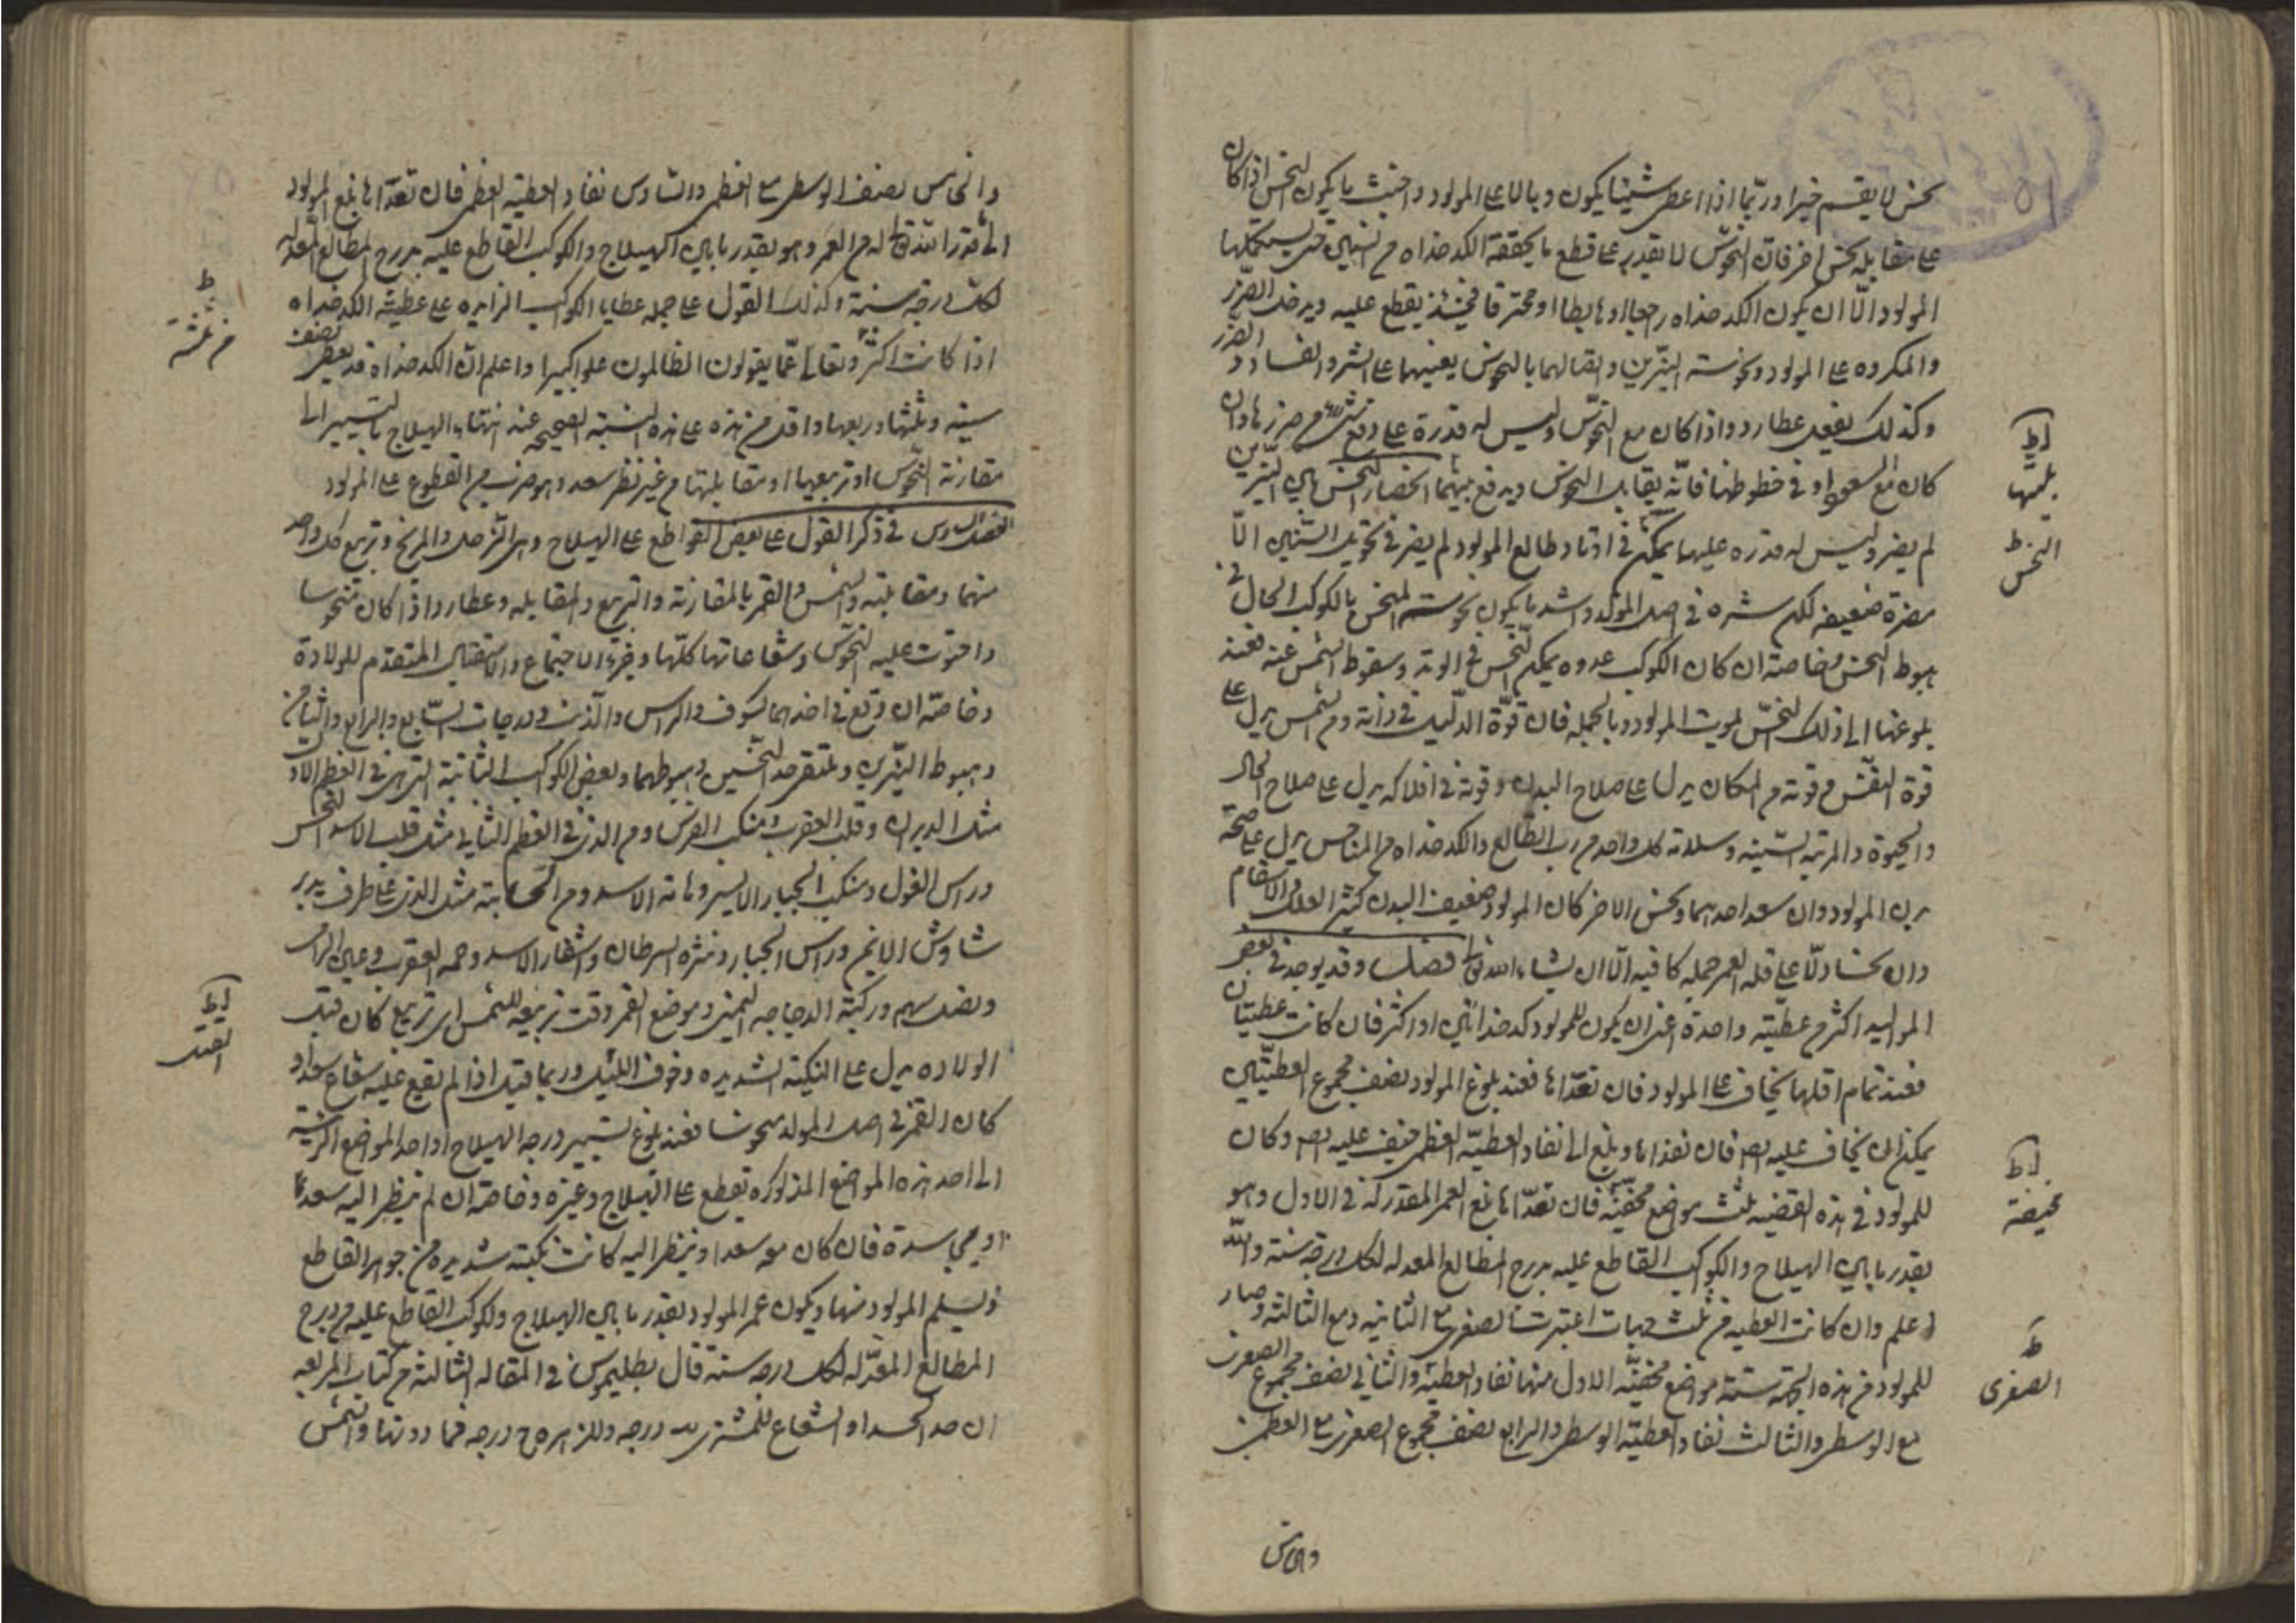 نحس لا يقسم خيرا وربّما اذا اعطى شيئا يكون وبالا على المولود واخبث ما يكون النحس اذا كان
على مقابلة نحس اخر فان النحوس لا تقدر على قطع ما يحققه الكدخداه من السنين حتى يستكملها
المولود الّا ان يكون الكدخداه راجعا او هابطا او محترقا فحينئذ يقطع عليه ويدخل الضرر
والمكروه على المولود ونحوسة النيّرين واتصالهما بالنحوس يعينهما على الشر والفساد و الضرر
وكذلك يفعل عطارد واذا كان مع النحوس وليس له قدرة على دفع شرّ من ضررها وان
كان مع السعود او في حظوظها فانّه يقابل النحوس ويدفع بينهما انحصار النحس بين النيّرين
لم يضر وليس له قدره عليها يمكن في اوتاد طالع المولود لم يضر في تحويل السنين الّا
مضرة ضعيفه لكل شره في اصل المولد واشد ما يكون نحوسة المنحس بالكوكب الحال في
هبوط النحس وخاصة ان كان الكوكب عدوه يمكن النحس في الوتد وسقوط الشمس عنه فعند
بلوغها الى ذلك النحس يموت المولود وبالجمله فان قوّة الدليل في ذاته ومن الشمس يدل على
قوة النفس وقوته من المكان يدل على صلاح البدن وقوته في افلاكه يدل على صلاح الحال
والحيوة والمرتبه السنيّه وسلامة كل واحد من رب الطالع والكدخداه من المناحس يدل على صحّة
بدن المولود وان سعد احدهما ونحس الاخر كان المولود ضعيف البدن كثير العلل والاسقام
وان نحسا دلّا على قلة العمر جمله كافيه الّا ان يشاء الله تعالى فصل وقد يوجد في بعض
المواليد اكثر من عطيّة واحدة اعنى ان يكون للمولود كدخدائين او اكثر فان كانت عطيتان
فعند تمام اقلها يخاف على المولود فان تعدّاها فعند بلوغ المولود نصف مجموع العطيتين
يمكن ان يخاف عليه ايضا فان نفذها وبلغ الى نفاد العطيّة العظمى خيف عليه ايضا وكان
للمولود في هذه القضيه ثلث مواضع مخيفة فان تعدّاها بلغ العمر المقدر له في الاول وهو
بقدر ما بين الهيلاج والكوكب القاطع عليه بدرج المطالع المعدله لكل درجة سنة والله
اعلم وان كانت العطيه من ثلث جهات اعتبرت الصغرى مع الثانيه ومع الثالثة وصار
للمولود من هذه الجهة ستة مواضع مخيفة الاول منها نفاد العطيّة الصغرى والثاني نصف مجموع الصغرى
مع الوسطى والثالث نفاد العطيّة الوسطى والرابع نصف مجموع الصغرى مع العظمى
والخامس
النحس ط
مخيفة
ط
الصغرى
والخامس نصف الوسطى مع العظمى والسادس نفاد العطيّة العظمى فان تعدّاها بلغ المولود
الى ما قدر الله تعالى له من العمر وهو بقدر ما بين الهيلاج والكوكب القاطع عليه بدرج المطالع المعدله
لكل درجة سنة وكذلك القول على جملة عطايا الكواكب الزايده على عطية الكدخداه
اذا كانت اكثر وتعالى عمّا يقولون الظالمون علوا كبيرا واعلم ان الكدخداه قد يعطى نصف
سنيه وثلثها وربعها واقل من هذه على هذه النسبة الصحيحه عند انتهاء الهيلاج بالتسيير الى
مقارنة النحوس او تربيعها او مقابلتها من غير نظر سعد وهو ضرب من القطوع على المولود
الفصل السادس في ذكر القول على بعض القواطع على الهيلاج وهى الزحل والمريخ وتربيع كل واحد
منهما ومقابلته والشمس والقمر بالمقارنة والتربيع والمقابله وعطارد اذا كان منحوسا
واحتوت عليه النحوس وشعاعاتها كلّها وجزء الاجتماع والاستقبال المتقدم للولادة
وخاصّة ان وقع في احدهما كسوف والراس والذنب ودرجات السابع والرابع والثامن
وهبوط النيّرين وملتقى حد النحسين وهبوطهما وبعض الكواكب الثابتة التى هى في العظم الاول
مثل الدبران وقلب العقرب ومنكب الفرس ومن الذى في العظم الثانى مثل قلب الاسد النحس
وراس الغول ومنكب الجبار الايسر وهامة الاسد ومن السحابية مثل الذى على طرف يد بر
شاوش الايمن وراس الجبار ونثره السرطان واشفار الاسد وحمه العقرب وعين الرامى
ونصل سهم وركبة الدجاجه اليمنى وموضع القمر وقت تربيعه للشمس اى تربيع كان قبل
الولاده يدل على النكبة الشديده وخوف القتل وربما قتل اذا لم يقع عليه شعاع سعد او
كان القمر في اصل المولد منحوسا فعند بلوغ تسيير درجه الهيلاج او احد المواضع الرئيسة
الى احد هذه المواضع المذكوره تقطع على الهيلاج وغيره وخاصة ان لم ينظر اليه سعد
او يجاسده فان كان معه سعد او ينظر اليه كانت نكبته شديدة من جوهر القاطع
ويسلم المولود منها ويكون عمر المولود بقدر ما بين الهيلاج والكوكب القاطع عليه من درج
المطالع المعدّله لكل درجه سنة قال بطليموس في المقاله الثالثة من كتاب المربعه
ان حد الجسد او الشعاع للمشترى يب درجه وللزهره ح درجه فما دونها والشمس
القتل